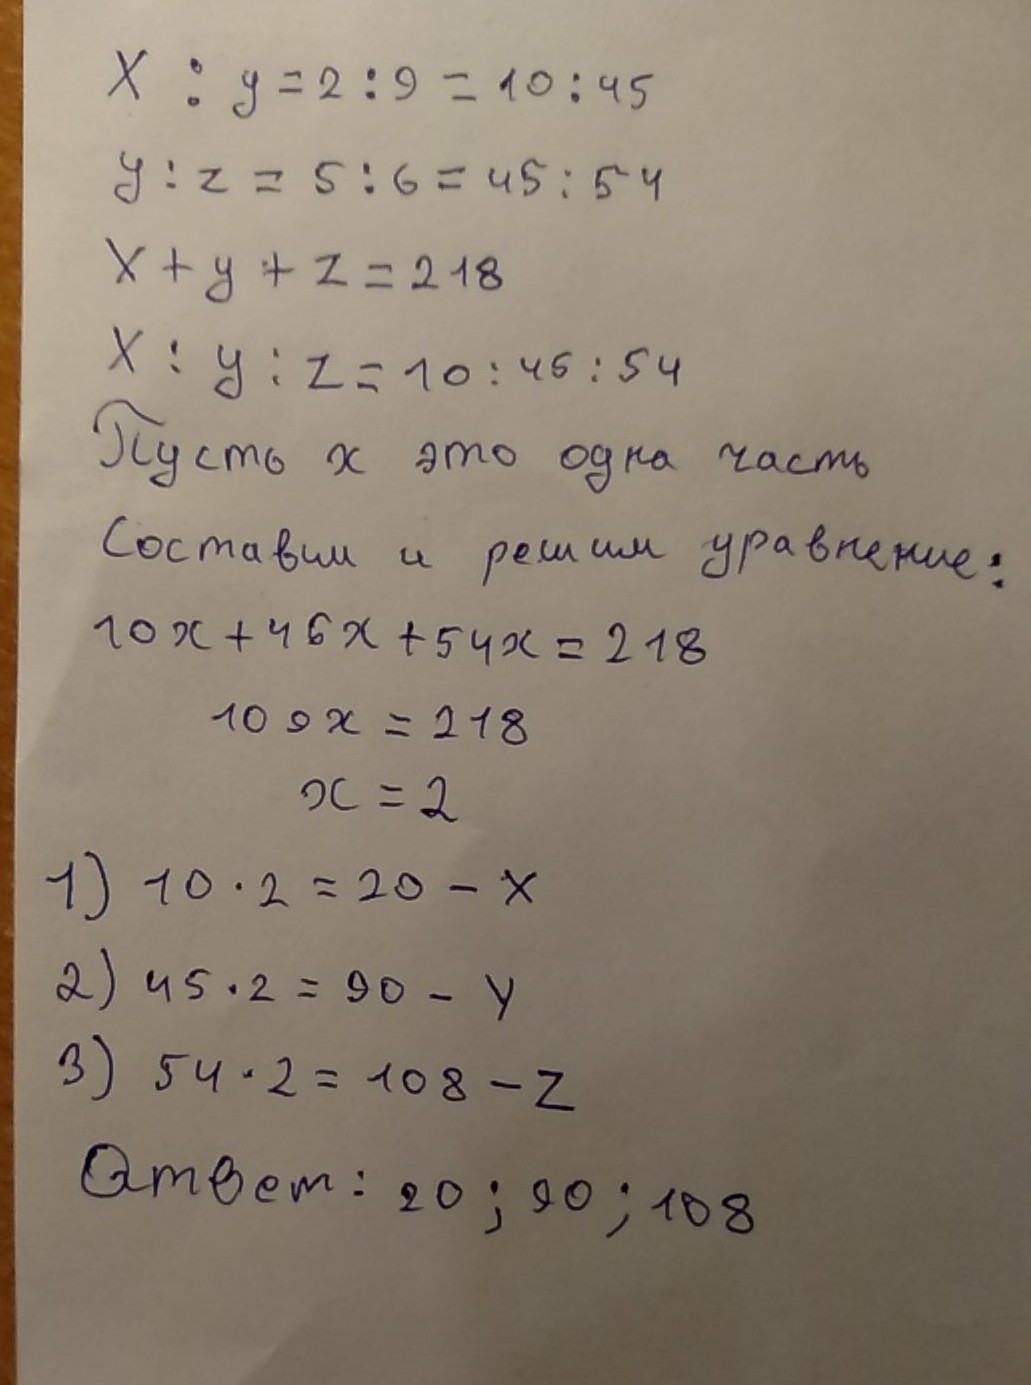 X : y = 2 : 9 = 10 : 45
y : z = 5 : 6 = 45 : 54
X + y + z = 218
X : y : z = 10 : 45 : 54
Пусть x это одна часть
Составим и решим уравнение:
10x + 45x + 54x = 218
109x = 218
x = 2
1) 10 · 2 = 20 – X
2) 45 · 2 = 90 – Y
3) 54 · 2 = 108 – Z
Ответ: 20 ; 90 ; 108